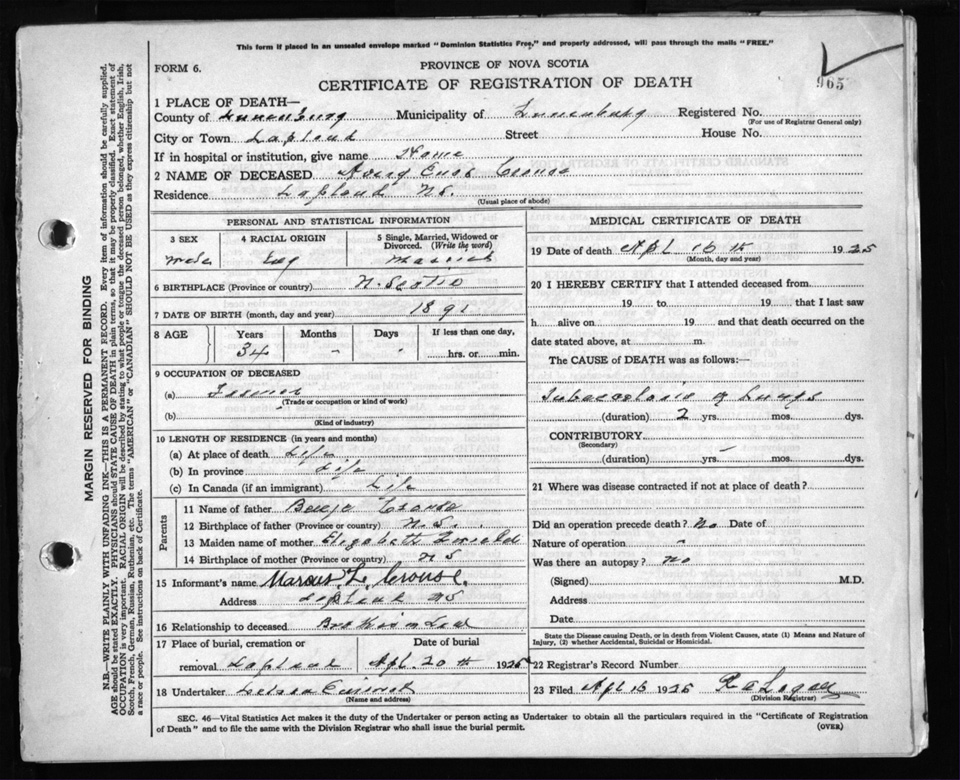 This form if placed in an unsealed envelope marked "Dominion Statistics Free," and properly addressed, will pass through the mails "FREE."
FORM 6.
PROVINCE OF NOVA SCOTIA
965
CERTIFICATE OF REGISTRATION OF DEATH
1 PLACE OF DEATH—
County of Lunenburg Municipality of Lunenburg Registered No.
(For use of Registrar General only)
City or Town Lapland Street House No.
If in hospital or institution, give name Home
2 NAME OF DECEASED Crouse
Residence Lapland NS.
(Usual place of abode)
PERSONAL AND STATISTICAL INFORMATION
3 SEX 4 RACIAL ORIGIN 5 Single, Married, Widowed or Divorced. (Write the word)
Male Eng Married
6 BIRTHPLACE (Province or country) N. Scotia
7 DATE OF BIRTH (month, day and year) 1891
8 AGE Years Months Days If less than one day,
34 - - hrs. or min.
9 OCCUPATION OF DECEASED
(a) Farmer
(Trade or occupation or kind of work)
(b)
(Kind of industry)
10 LENGTH OF RESIDENCE (in years and months)
(a) At place of death Life
(b) In province Life
(c) In Canada (if an immigrant) Life
Parents
11 Name of father Crouse
12 Birthplace of father (Province or country) N.S.
13 Maiden name of mother Elizabeth
14 Birthplace of mother (Province or country) N S
15 Informant's name Marcus L. Crouse.
Address Lapland NS
16 Relationship to deceased Brother in Law
17 Place of burial, cremation or Date of burial
removal Lapland Apl. 20th 1925
18 Undertaker
(Name and address)
MEDICAL CERTIFICATE OF DEATH
19 Date of death Apl 1925
(Month, day and year)
20 I HEREBY CERTIFY that I attended deceased from
19 to 19 that I last saw
h alive on 19 and that death occurred on the
date stated above, at m.
The CAUSE of DEATH was as follows:—
Tuberculosis of Lungs
(duration) 2 yrs. mos. dys.
CONTRIBUTORY
(Secondary)
(duration) yrs. - mos. dys.
21 Where was disease contracted if not at place of death?
Did an operation precede death? No Date of
Nature of operation -
Was there an autopsy? No
(Signed) M.D.
Address
Date
State the Disease causing Death, or in death from Violent Causes, state (1) Means and Nature of
Injury, (2) whether Accidental, Suicidal or Homicidal.
22 Registrar's Record Number
23 Filed Apl 1925 Logan
(Division Registrar)
SEC. 46—Vital Statistics Act makes it the duty of the Undertaker or person acting as Undertaker to obtain all the particulars required in the "Certificate of Registration
of Death" and to file the same with the Division Registrar who shall issue the burial permit. (OVER)
MARGIN RESERVED FOR BINDING
N.B.—WRITE PLAINLY WITH UNFADING INK—THIS IS A PERMANENT RECORD. Every item of information should be carefully supplied.
AGE should be stated EXACTLY. PHYSICIANS should STATE CAUSE OF DEATH in plain terms, so that it may be properly classified. Exact statement of
OCCUPATION is very important. RACIAL ORIGIN will be described by stating to what people or tongue the deceased person belonged, whether English, Irish,
Scotch, French, German, Russian, Ruthenian, etc. The terms "AMERICAN" or "CANADIAN" SHOULD NOT BE USED as they express citizenship but not
a race or people. See instructions on back of Certificate.